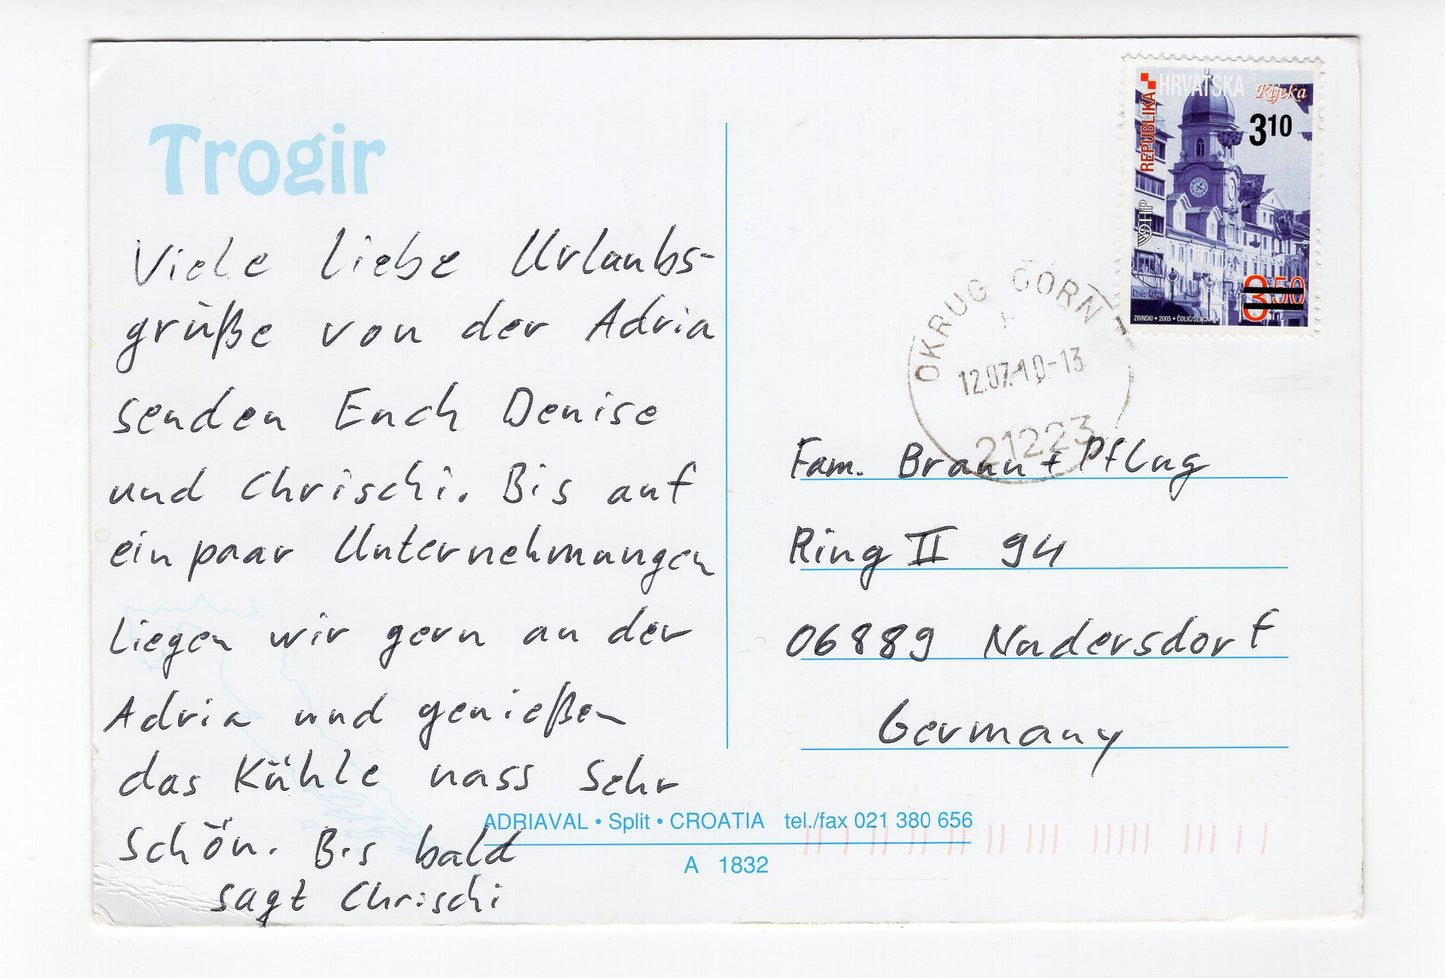 Trogir
Viele liebe Urlaubs-
grüße von der Adria
senden Euch Denise
und Chrischi. Bis auf
ein paar Unternehmungen
liegen wir gern an der
Adria und genießen
das Kühle nass sehr
schön. Bis bald
sagt Chrischi
REPUBLIKA HRVATSKA
Rijeka
310
HP
3,50
ZRINSKI • 2005 •
OKRUG GORNJI
12.07.10-13
21223
Fam. Braun + Pflug
Ring II 94
06889 Nudersdorf
Germany
ADRIAVAL • Split • CROATIA tel./fax 021 380 656
A 1832